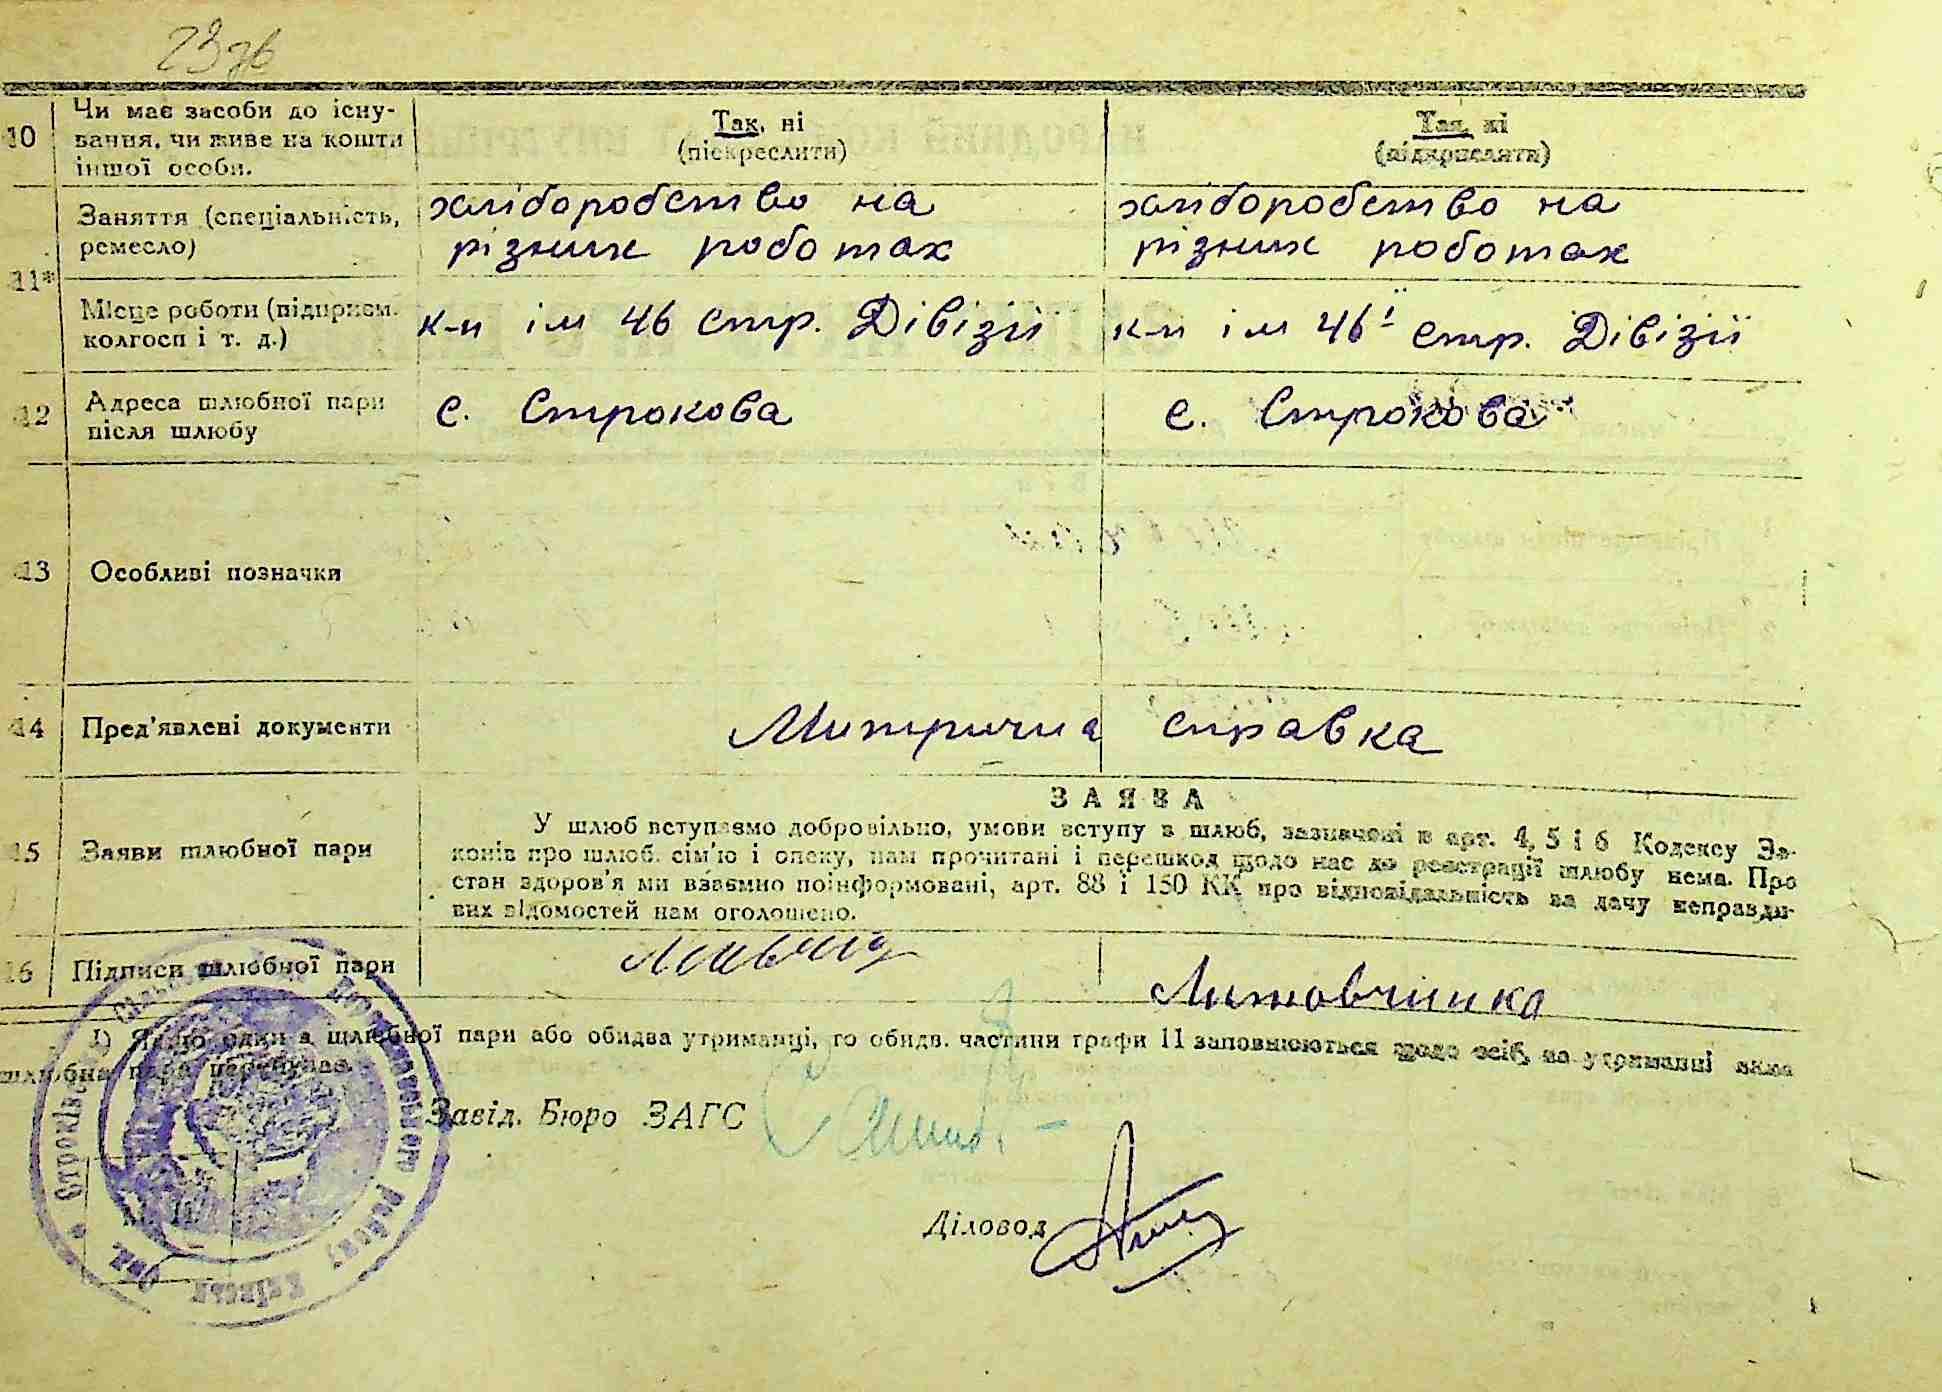 23 зв
10 Чи має засоби до існу-
вання, чи живе на кошти
іншої особи.
Так, ні
(піскреслити)
Так, ні
(підкреслити)
11* Заняття (спеціальність,
ремесло)
хліборобство на
різних роботах
хліборобство на
різних роботах
Місце роботи (підприєм.
колгосп і т. д.)
к-п ім 46 стр. Дівізії
к-п ім 46ї стр. Дівізії
12 Адреса шлюбної пари
після шлюбу
с. Строкова
с. Строкова
13 Особливі позначки
14 Пред'явлені документи
Митрична справка
15 Заяви шлюбної пари
ЗАЯВА
У шлюб вступаємо добровільно, умови вступу в шлюб, зазначені в арт. 4, 5 і 6 Кодексу За-
конів про шлюб, сім'ю і опеку, нам прочитані і перешкод щодо нас до реєстрації шлюбу нема. Про
стан здоров'я ми взаємно поінформовані, арт. 88 і 150 КК про відповідальність за дачу неправди-
вих відомостей нам оголошено.
16 Підписи шлюбної пари
Литовчинко
1) Якщо один з шлюбної пари або обидва утриманці, то обидв. частини графи 11 заповнюються щодо осіб, на утриманні яких
шлюбна пара перебуває.
Завід. Бюро ЗАГС
Діловод
М. П.